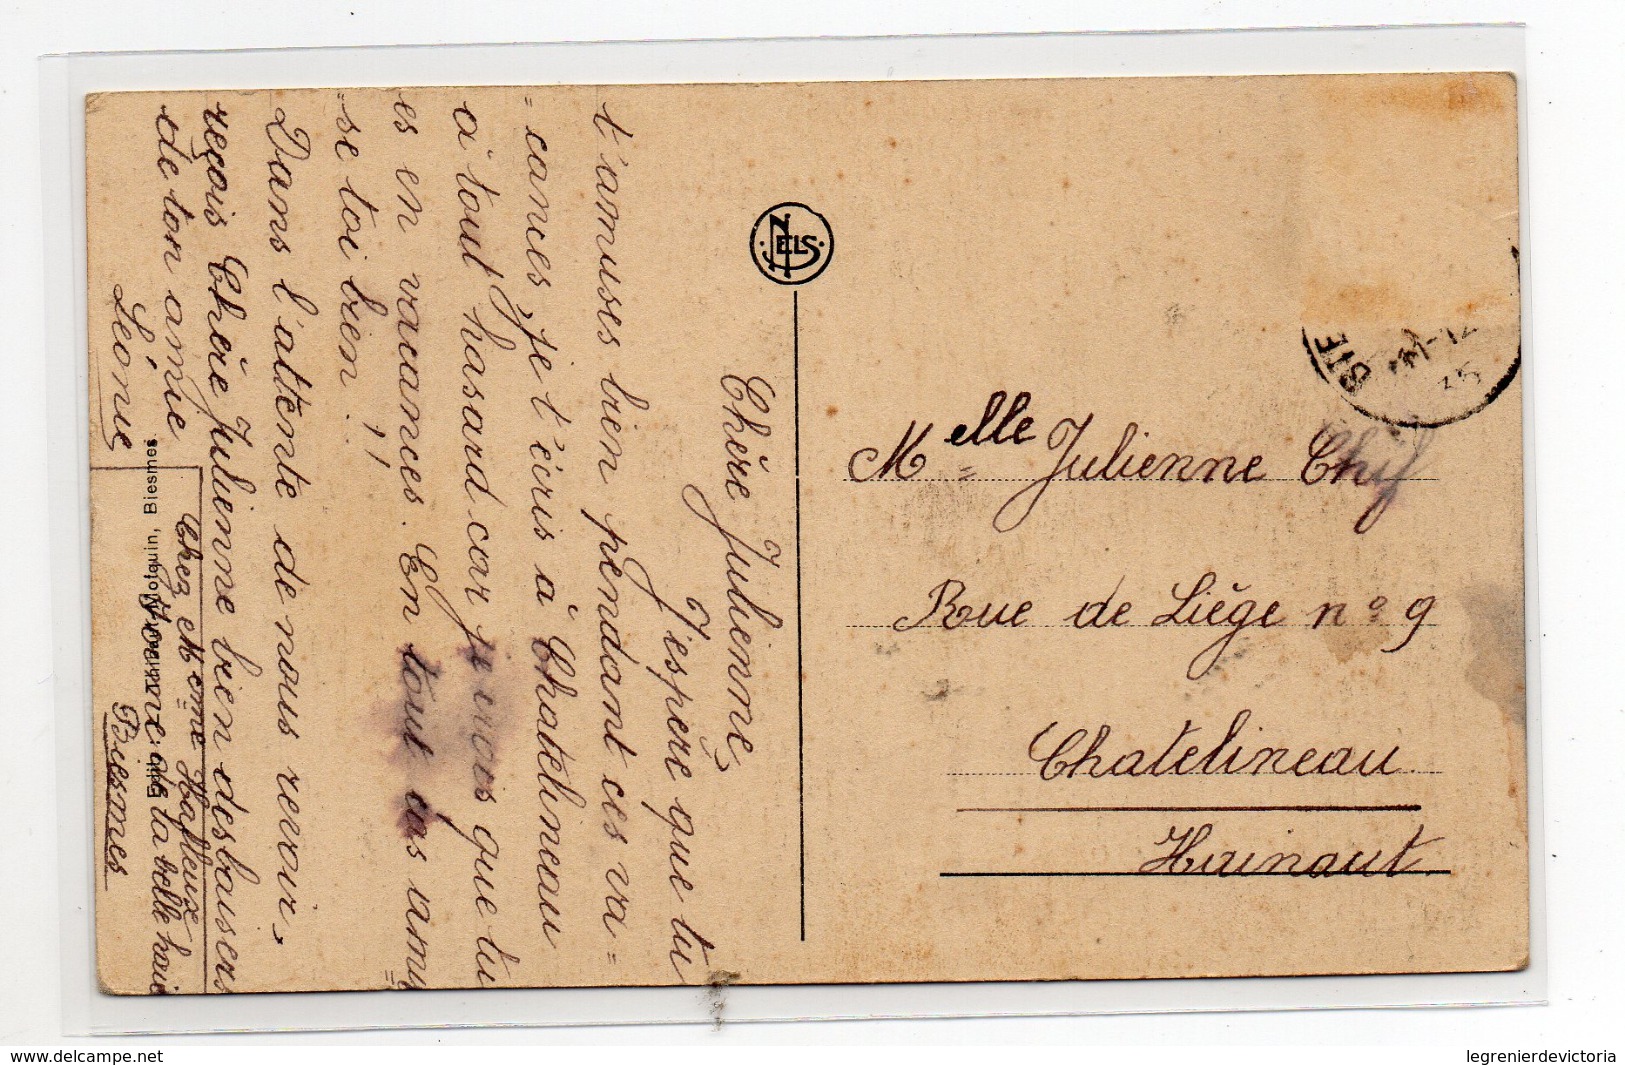 Chère Julienne,
J'espère que tu
t'amuses bien pendant ces va=
=cances, je t'écris à Chatelineau
à tout hasard car je crois que tu
es en vacances. En tout cas amu
=se toi bien!
Dans l'attente de nous revoir,
reçois Chère Julienne bien des baisers
de ton amie
Léone
Chez Mme Hafleux
de la belle haie
Biesmes
Biesmes.
NELS
Melle Julienne
Rue de Liège no 9
Chatelineau
Hainaut.
delcampe.net
legrenierdevictoria